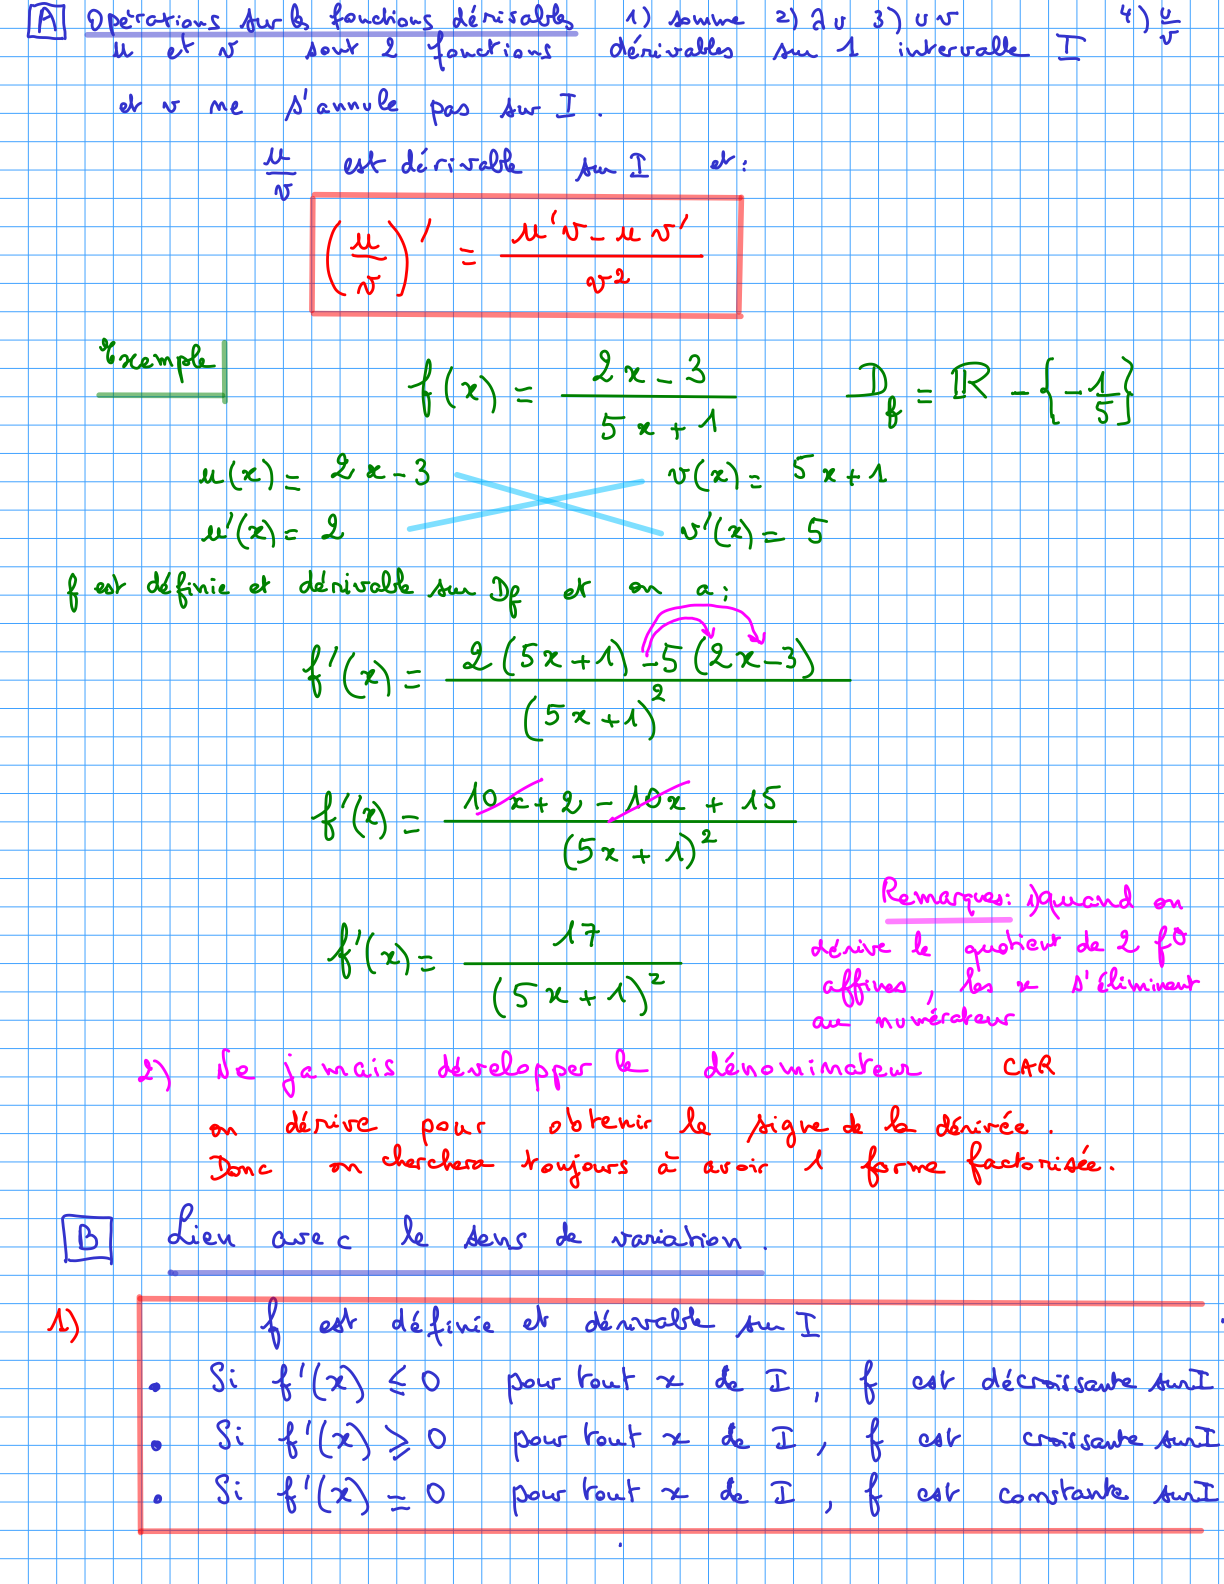 A Opérations sur les fonctions dérivables 1) somme 2) λu 3) uv 4) u/v
u et v sont 2 fonctions dérivables sur 1 intervalle I
et v ne s'annule pas sur I.
u/v est dérivable sur I et:
(u/v)' = (u'v - uv')/v²
Exemple f(x) = (2x - 3)/(5x + 1) D_f = ℝ - {-1/5}
u(x) = 2x - 3 v(x) = 5x + 1
u'(x) = 2 v'(x) = 5
f est définie et dérivable sur Df et on a:
f'(x) = (2(5x + 1) - 5(2x - 3))/(5x + 1)²
f'(x) = (10x + 2 - 10x + 15)/(5x + 1)²
f'(x) = 17/(5x + 1)²
Remarques: 1) Quand on
dérive le quotient de 2 f°
affines, les x s'éliminent
au numérateur
2) Ne jamais développer le dénominateur CAR
on dérive pour obtenir le signe de la dérivée.
Donc on cherchera toujours à avoir 1 forme factorisée.
B Lien avec le sens de variation.
1) f est définie et dérivable sur I
• Si f'(x) ≤ 0 pour tout x de I, f est décroissante sur I
• Si f'(x) ≥ 0 pour tout x de I, f est croissante sur I
• Si f'(x) = 0 pour tout x de I, f est constante sur I